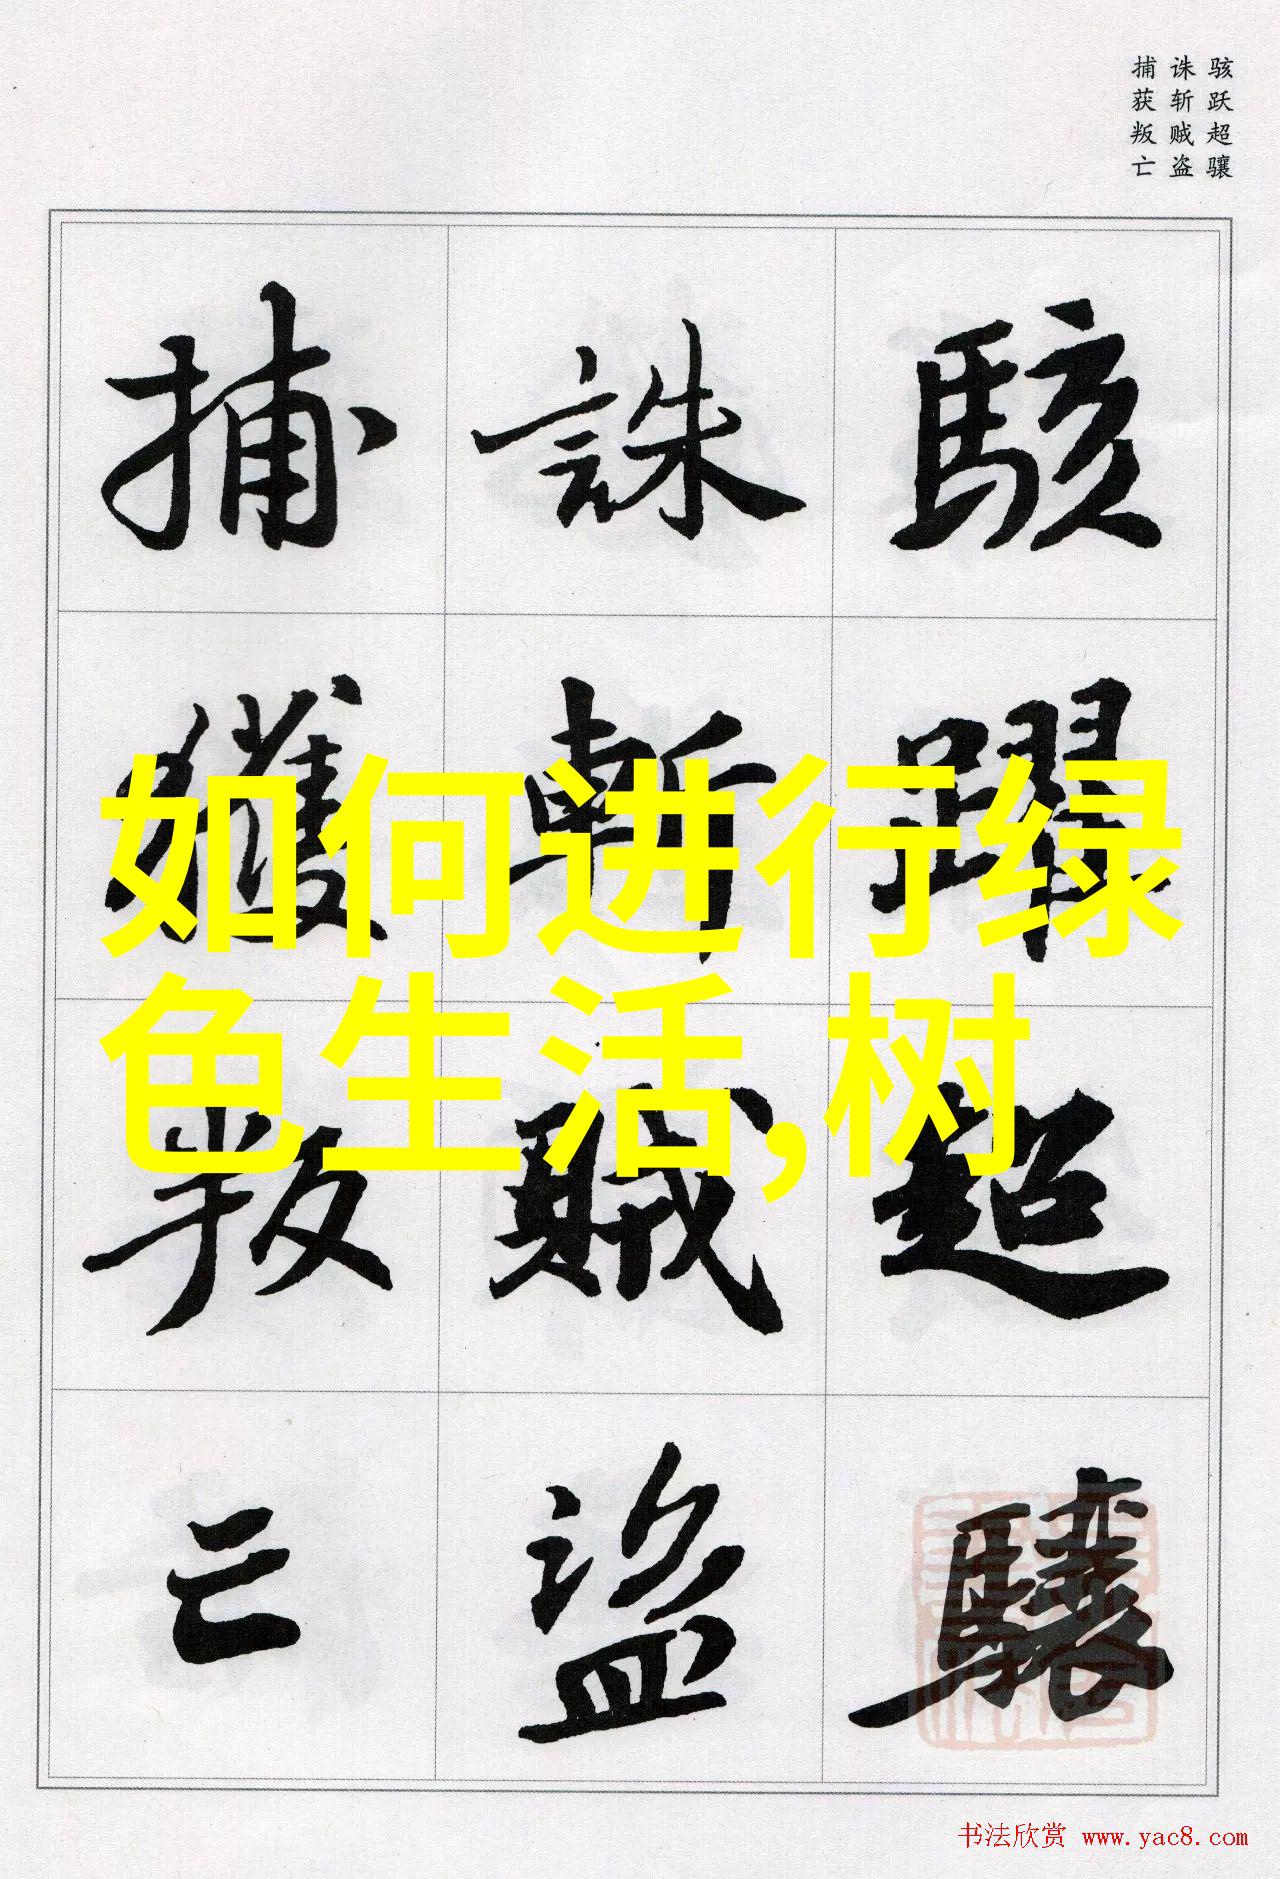 骇跃超骧
诛斩贼盗
捕获叛亡
駭躍超驤
誅斬賊盜
捕獲叛亡
如何进行绿
色生活,树
书法欣赏 www.yac8.com